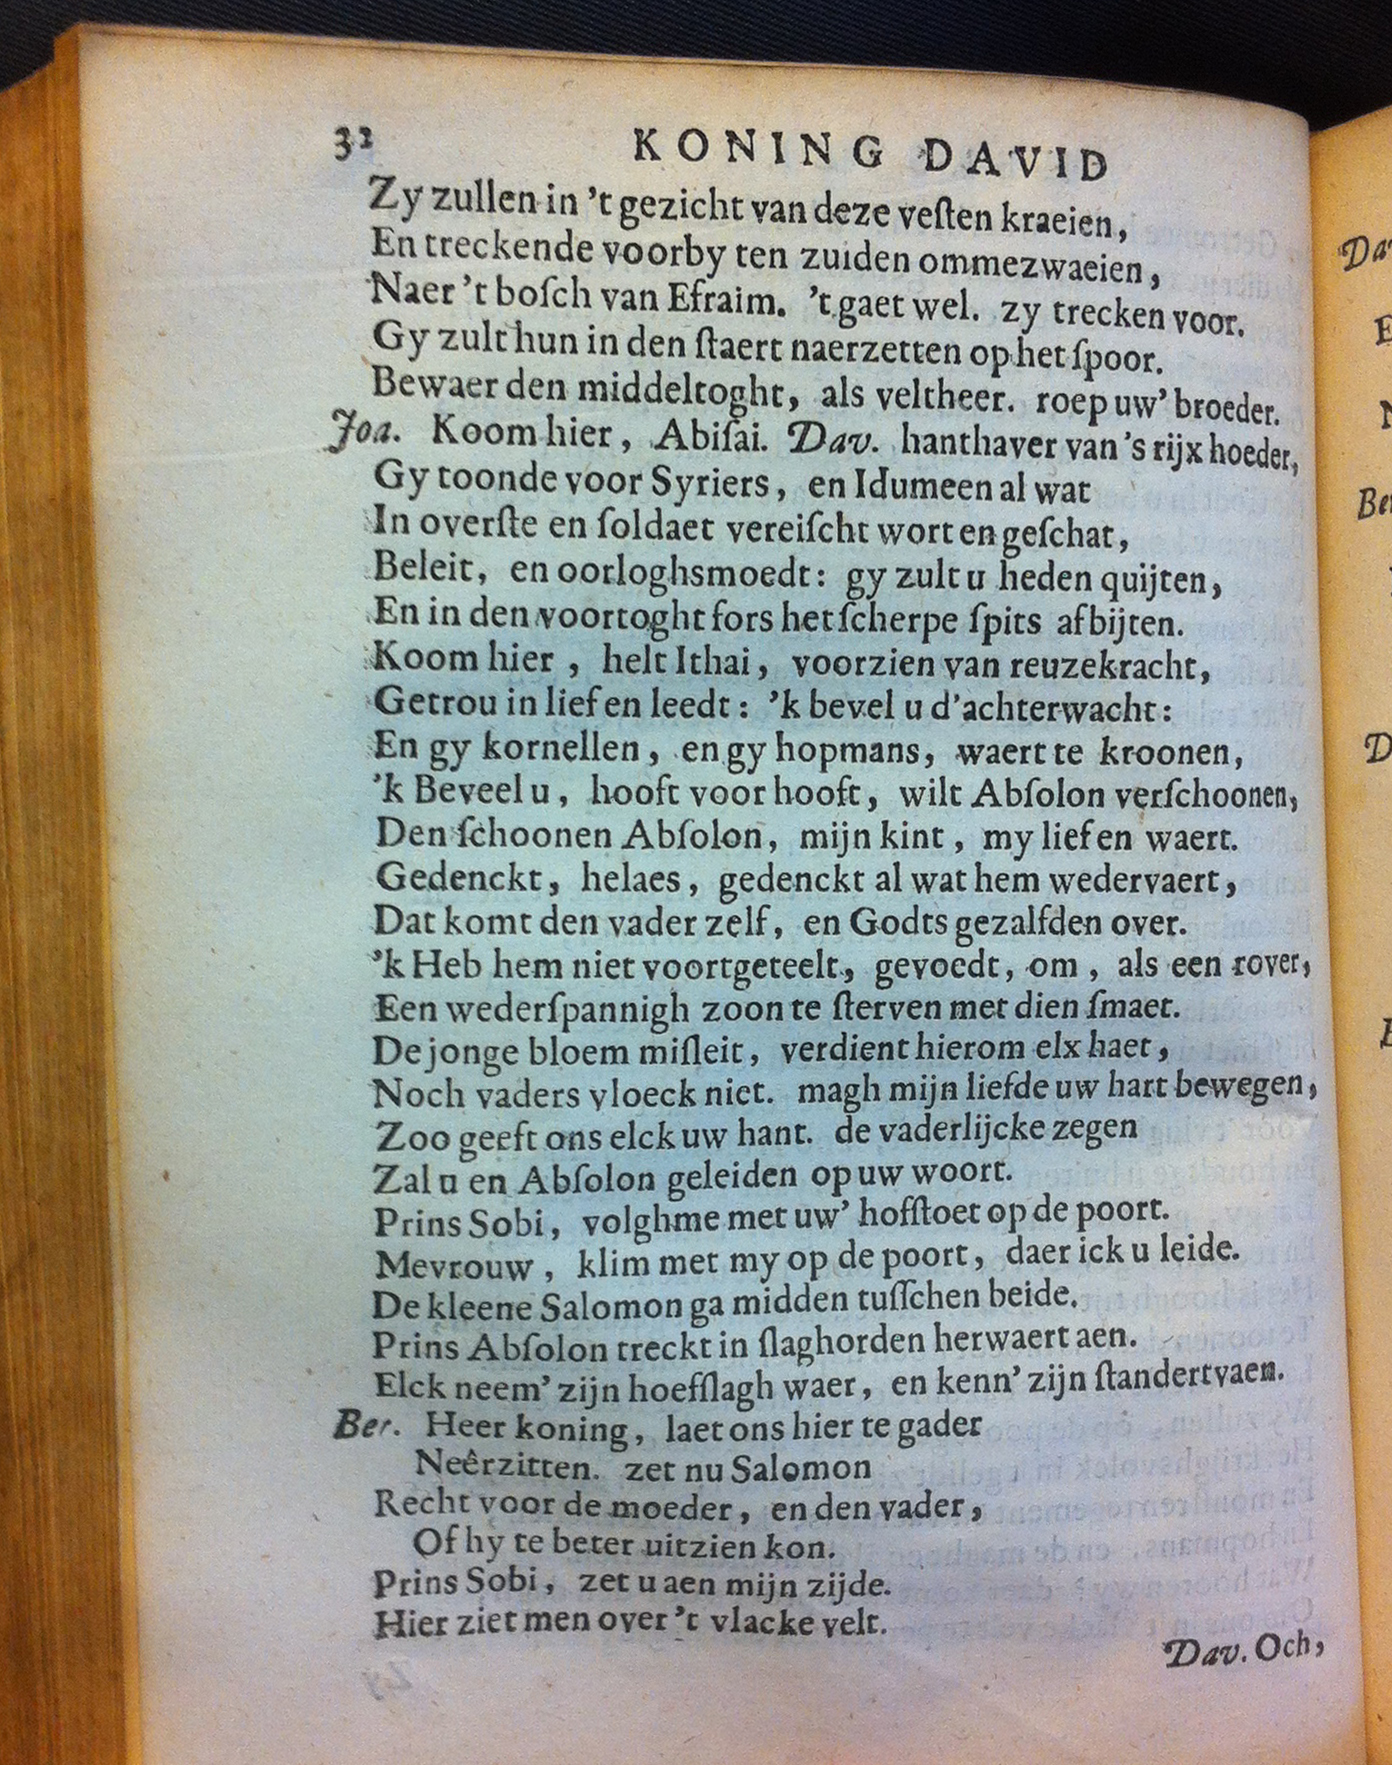 32 KONING DAVID
Zy zullen in 't gezicht van deze veſten kraeien,
En treckende voorby ten zuiden ommezwaeien,
Naer 't boſch van Efraim. 't gaet wel. zy trecken voor.
Gy zult hun in den ſtaert naerzetten op het ſpoor.
Bewaer den middeltoght, als veltheer. roep uw' broeder.
Joa. Koom hier, Abiſai. Dav. hanthaver van 's rijx hoeder,
Gy toonde voor Syriers, en Idumeen al wat
In overſte en ſoldaet vereiſcht wort en geſchat,
Beleit, en oorloghsmoedt: gy zult u heden quijten,
En in den voortoght fors het ſcherpe ſpits afbijten.
Koom hier, helt Ithai, voorzien van reuzekracht,
Getrou in lief en leedt: 'k bevel u d'achterwacht:
En gy kornellen, en gy hopmans, waert te kroonen,
'k Beveel u, hooft voor hooft, wilt Abſolon verſchoonen,
Den ſchoonen Abſolon, mijn kint, my lief en waert.
Gedenckt, helaes, gedenckt al wat hem wedervaert,
Dat komt den vader zelf, en Godts gezalfden over.
'k Heb hem niet voortgeteelt, gevoedt, om, als een rover,
Een wederſpannigh zoon te ſterven met dien ſmaet.
De jonge bloem miſleit, verdient hierom elx haet,
Noch vaders vloeck niet. magh mijn liefde uw hart bewegen,
Zoo geeft ons elck uw hant. de vaderlijcke zegen
Zal u en Abſolon geleiden op uw woort.
Prins Sobi, volgh me met uw' hofſtoet op de poort.
Mevrouw, klim met my op de poort, daer ick u leide.
De kleene Salomon ga midden tuſſchen beide.
Prins Abſolon treckt in ſlaghorden herwaert aen.
Elck neem' zijn hoefſlagh waer, en kenn' zijn ſtandertvaen.
Ber. Heer koning, laet ons hier te gader
Neêrzitten. zet nu Salomon
Recht voor de moeder, en den vader,
Of hy te beter uitzien kon.
Prins Sobi, zet u aen mijn zijde.
Hier ziet men over 't vlacke velt.
Dav. Och,